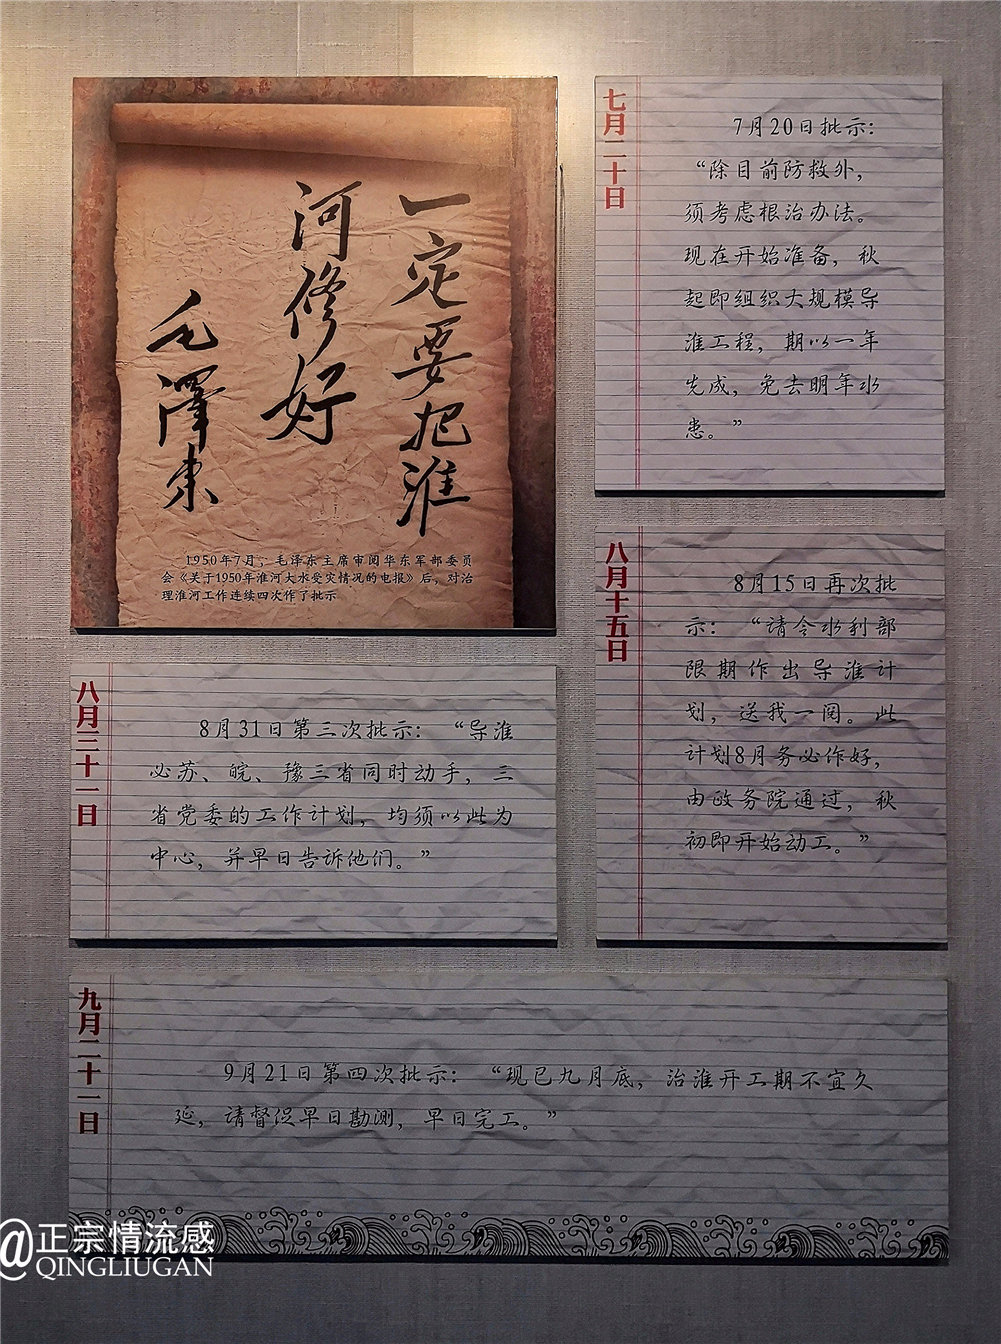 一定要把淮
河修好
毛澤东
1950年7月，毛泽东主席审阅华东军部委员
会《关于1950年淮河大水受灾情况的电报》后，对治
理淮河工作连续四次作了批示
七月二十日
7月20日批示：
“除目前防救外，
须考虑根治办法。
现在开始准备，秋
起即组织大规模导
淮工程，期以一年
完成，免去明年水
患。”
八月十五日
8月15日再次批
示：“请令水利部
限期作出导淮计
划，送我一阅。此
计划8月务必作好，
由政务院通过，秋
初即开始动工。”
八月三十一日
8月31日第三次批示：“导淮
必苏、皖、豫三省同时动手，三
省党委的工作计划，均须以此为
中心，并早日告诉他们。”
九月二十一日
9月21日第四次批示：“现已九月底，治淮开工期不宜久
延，请督促早日勘测，早日完工。”
@正宗情流感
QINGLIUGAN